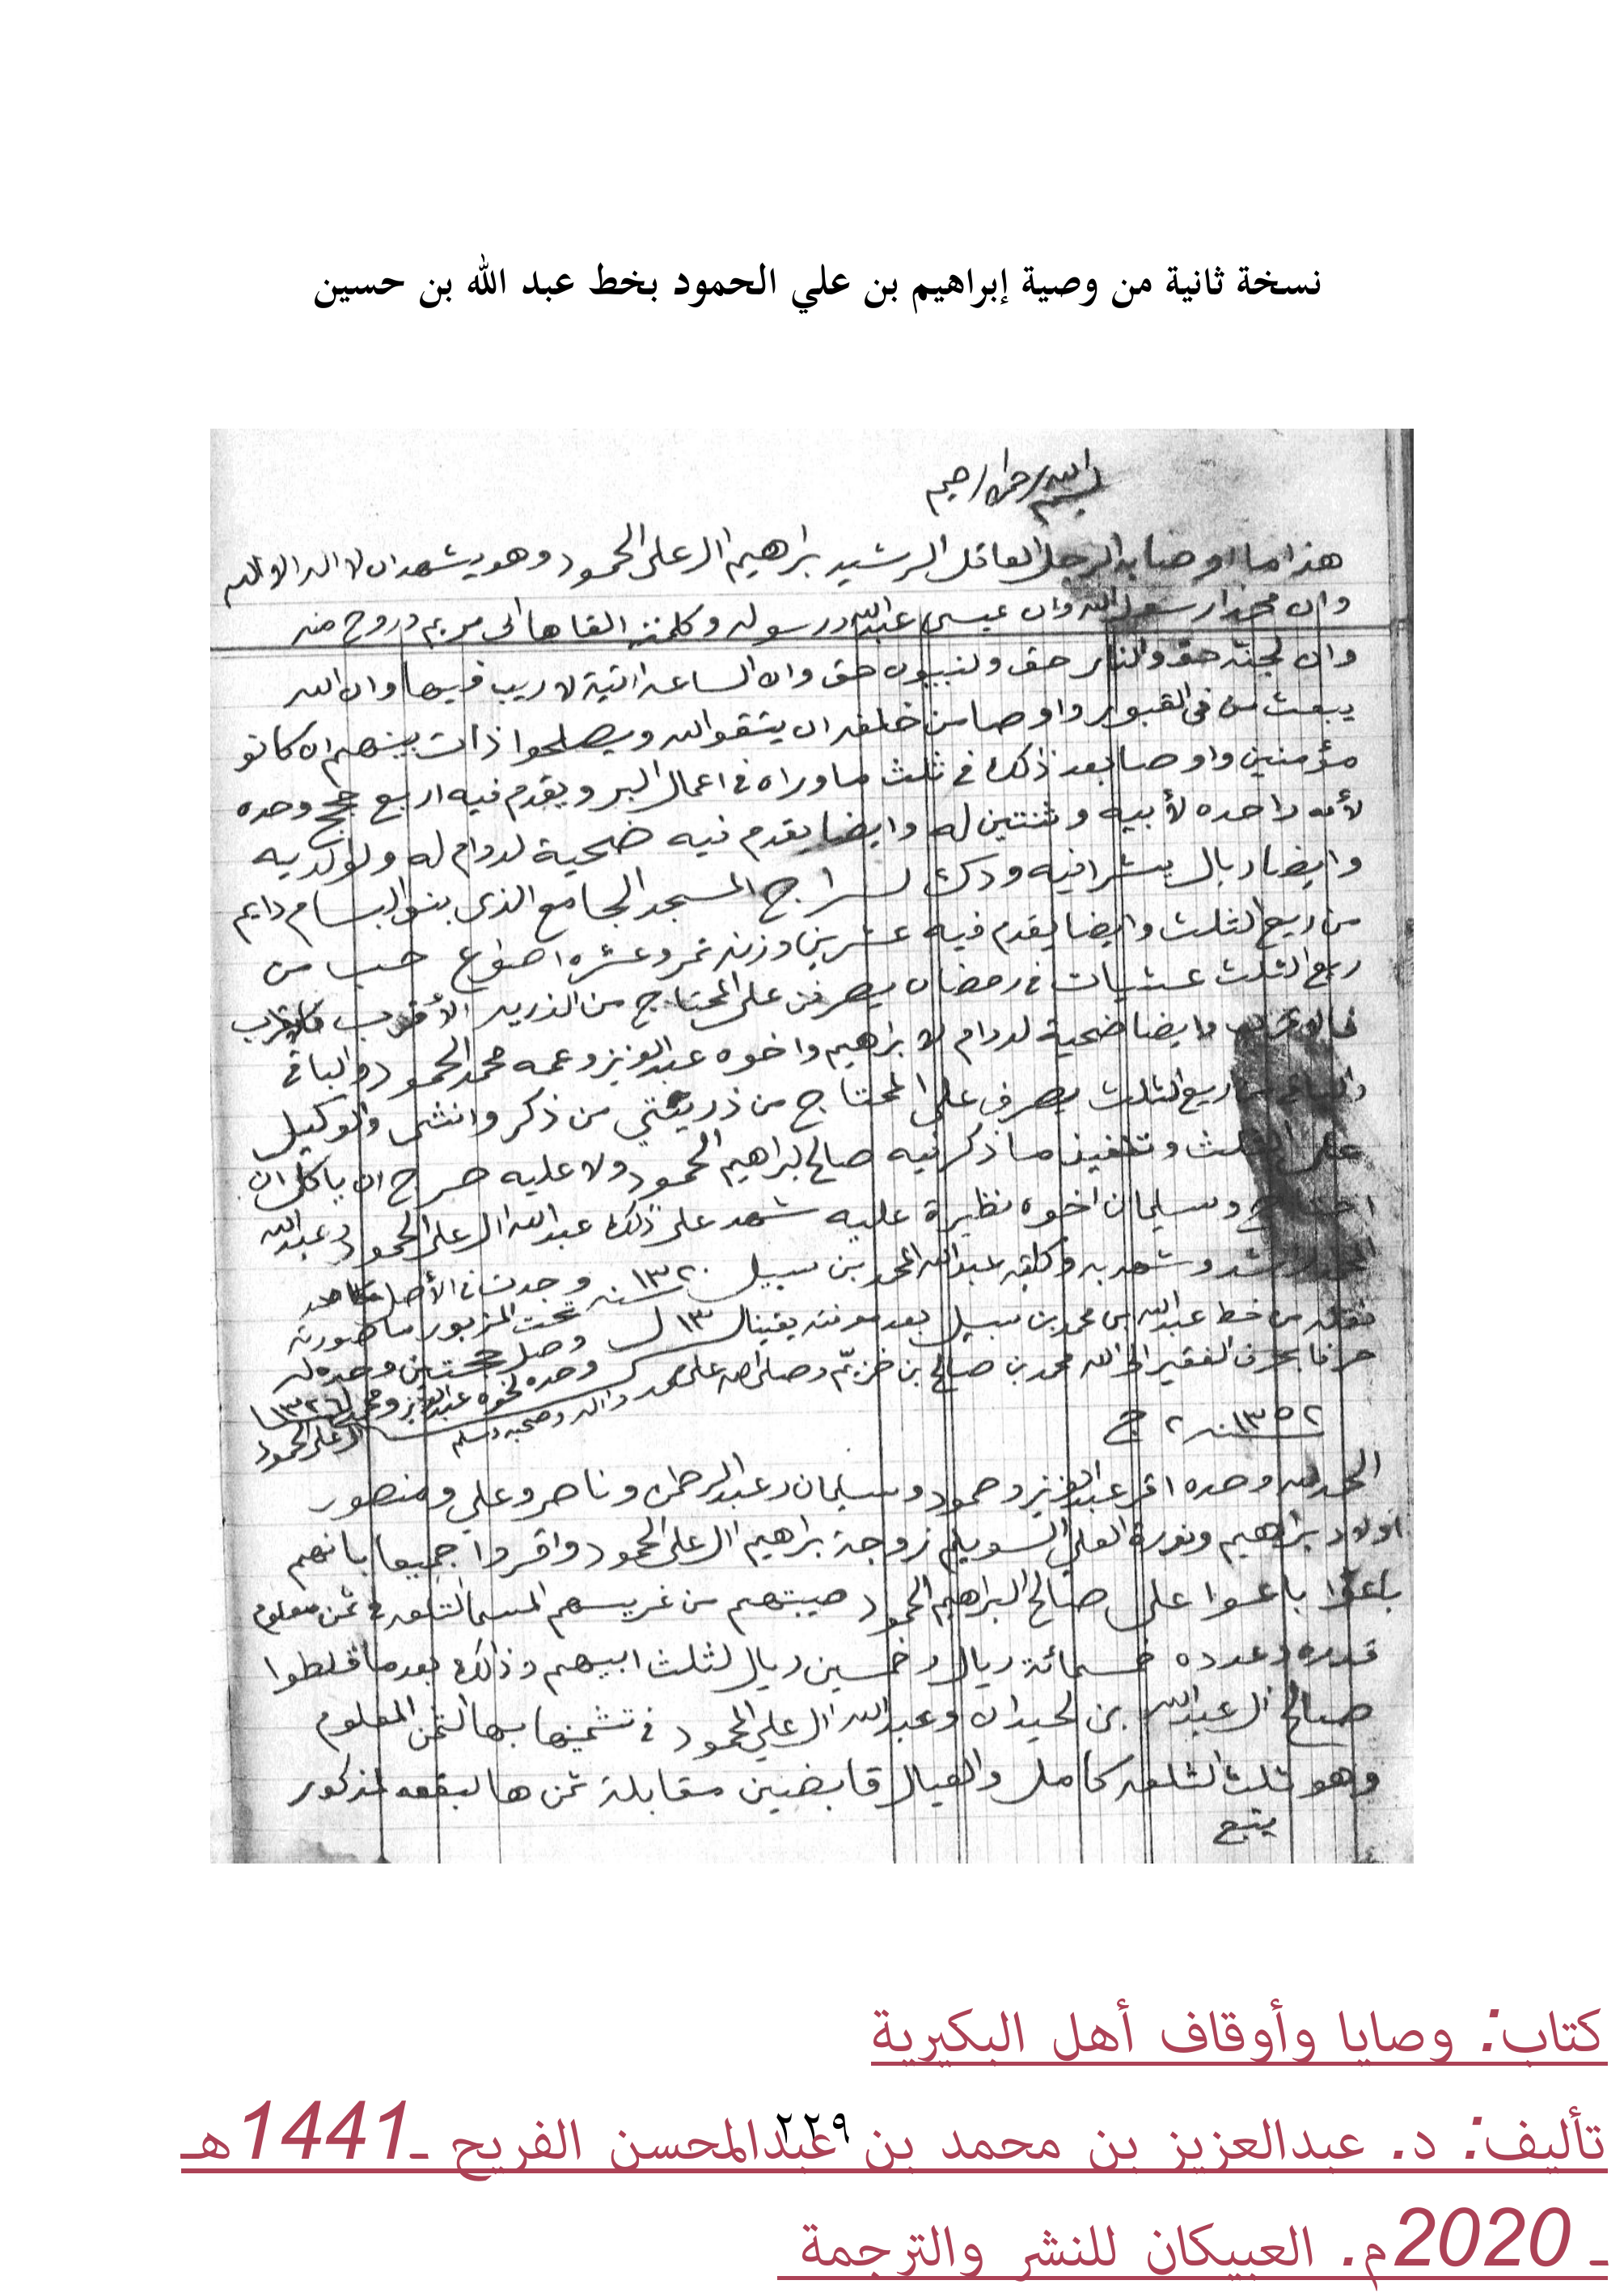 نسخة ثانية من وصية إبراهيم بن علي الحمود بخط عبد الله بن حسين
بسم الله الرحمن الرحيم
هذا ما اوصا به الرجل العاقل الرشيد براهيم ال علي الحمود وهو يشهد ان لا اله الا الله
وان محمدا رسول الله وان عيسى عبد الله ورسوله وكلمته القاها الى مريم وروح منه
وان لجنة حق والنار حق ولنبيون حق وان الساعة اتية لا ريب فيها وان الله
يبعث من في القبور واوصا من خلفه ان يتقو الله ويصلحوا ذات بينهم ان كانو
مؤمنين واوصا بعد ذلك في ثلث ما وراه في اعمال البر ويقدم فيه اربع حجج وحده
لأمه واحده لأبيه وثنتين له وايضا يقدم فيه ضحية لدوام له ولولديه
وايضا ريال بشرا فيه ودك لسراج المسجد الجامع الذي بنو البسام دايم
من ريع الثلث وايضا يقدم فيه عشرين وزنه تمر وعشره اصوع حب من
ريع الثلث عشيات في رمضان يصرفن على المحتاج من الذريه الأقرب
وايضا ضحية لدوام لا براهيم واخوه عبد العزيز وعمه محمد الحمود والباقي
ريع الثلث يصرف على المحتاج من ذريتي من ذكر وانثى والوكيل
على الثلث وتنفيذ ما ذكر فيه صالح لبراهيم الحمود ولا عليه حرج ان ياكل ان
احتاج وسليمان اخوه نظيرة عليه شهد على ذلك عبد الله ال علي الحمود وعبد الله
وشهد به وكتبه عبد الله المحمد بن سبيل ١٣٢٠ سنه وجدت في الأصل
نقله من خط عبد الله بن محمد بن سبيل بعد معرفته يقينا تحت المزبور ما صورته
حرفا بحرف الفقير الى الله محمد بن صالح بن خزيم وصلى الله على محمد واله وصحبه وسلم
وصل حجتين وحده له
وحده لخوه عبد العزيز ١٣٢٦
ال علي الحمود
١٣٥٢ سنه ٢ ج
الحمد لله وحده اقر عبد العزيز وحمود وسليمان وعبد الرحمن وناصر وعلي ومنصور
اولاد براهيم ونورة العلي السويلم زوجة براهيم ال علي الحمود واقروا جميعا بانهم
باعوا على صالح البراهيم الحمود صيبتهم من غريسهم المسما لتلعه في ثمن معلوم
قدره وعدده خمسمائة ريال وخمسين ريال لثلث ابيهم وذلك بعد ما قلطوا
صالح ال عبد الله بن لحيدان وعبد الله ال علي الحمود في تثمينها بها لثمن المعلوم
وهو ثلث لتلعه كامل والعيال قابضين مقابلة ثمن ها لبقعه لمذكور
يتبع
كتاب: وصايا وأوقاف أهل البكيرية
تأليف: د. عبدالعزيز بن محمد بن عبدالمحسن الفريح ـ1441هـ
٢٢٩
ـ 2020م. العبيكان للنشر والترجمة